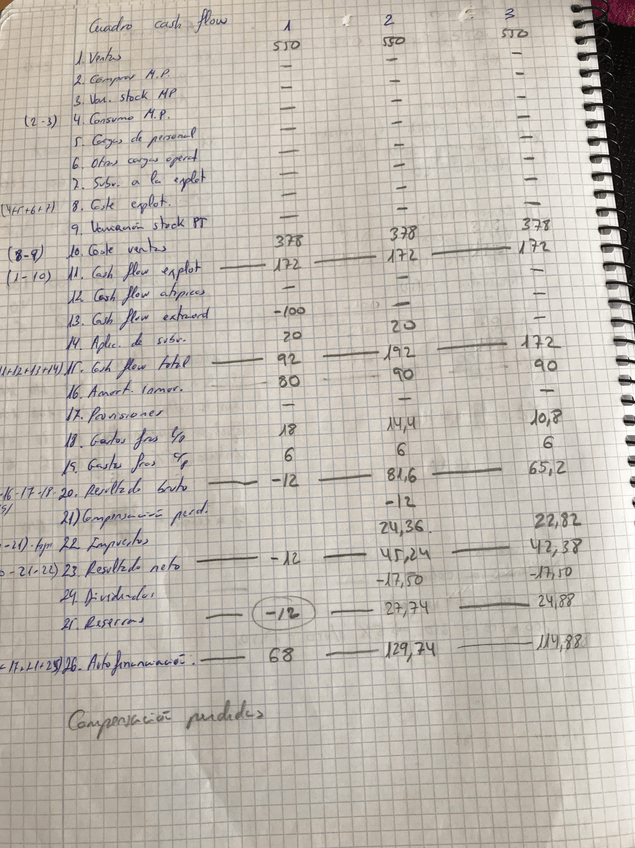 Cuadro cash flow 1 2 3
1. Ventas 550 550 550
2. Compras M.P. — — —
3. Var. stock MP — — —
(2-3) 4. Consumo M.P. — — —
5. Cargas de personal — — —
6. Otras cargas operat — — —
7. Subv. a la explot — — —
(4+5+6+7) 8. Coste explot. — — —
9. Variación stock PT — — —
(8-9) 10. Coste ventas 378 378 378
(1-10) 11. Cash flow explot 172 172 172
12. Cash flow atípicos — — —
13. Cash flow extraord -100 — —
14. Aplic. de subv. 20 20
11+12+13+14) 15. Cash flow total 92 192 172
16. Amort. inmov. 80 90 90
17. Provisiones — — —
18. Gastos fros l/p 18 14,4 10,8
19. Gastos fros c/p 6 6 6
-16-17-18- 20. Resultado bruto -12 81,6 65,2
21) Compensación perd. -12
-21). 22. Impuestos 24,36 22,82
-21-22) 23. Resultado neto -12 45,24 42,38
24. Dividendos -17,50 -17,50
25. Reservas -12 27,74 24,88
+17+21+25) 26. Autofinanciación. 68 129,74 114,88
Compensación perdidas